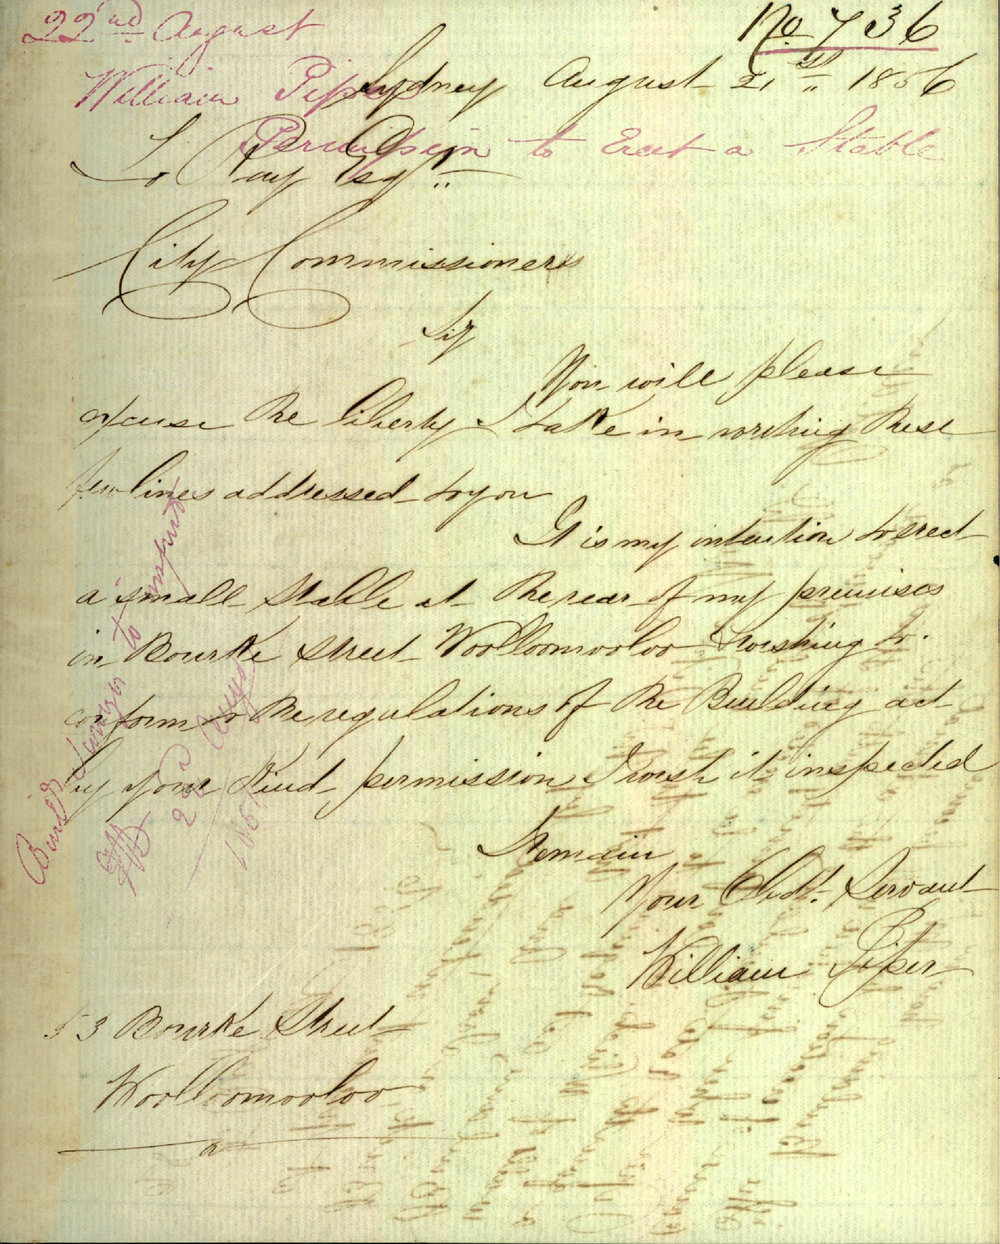 22nd August
No 736
William Piper
Sydney August 21st 1856
Permission to Erect a Stable
To Ray Esqr
City Commissioners
Sir
You will please
excuse the liberty I take in writing these
few lines addressed to you
It is my intention to erect
a small stable at the rear of my premises
in Bourke Street Woolloomooloo & wishing to
conform to the regulations of the Building act
by your kind permission I wish it inspected
I remain
Your Obdt. Servant
William Piper
53 Bourke Street
Woolloomooloo
Build Survyr to inspect
22d Augt
1856